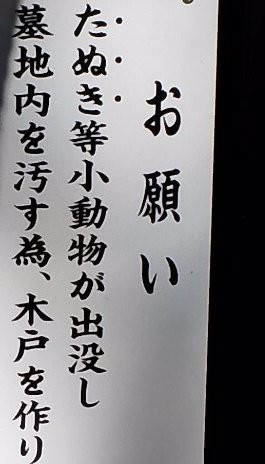 お願い
たぬき等小動物が出没し
墓地内を汚す為、木戸を作り